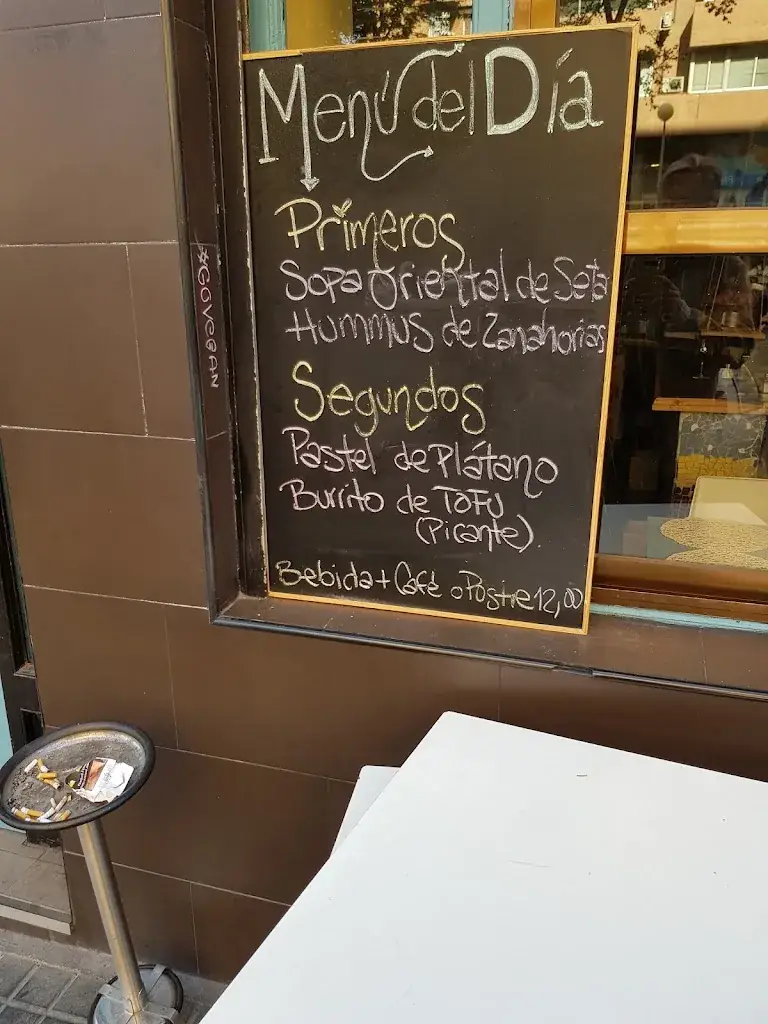 Menú del Día
Primeros
Sopa Oriental de Seta
Hummus de Zanahorias
Segundos
Pastel de Plátano
Burrito de Tofu
(Picante)
Bebida + Café o Postre 12,00
#GOVEGAN